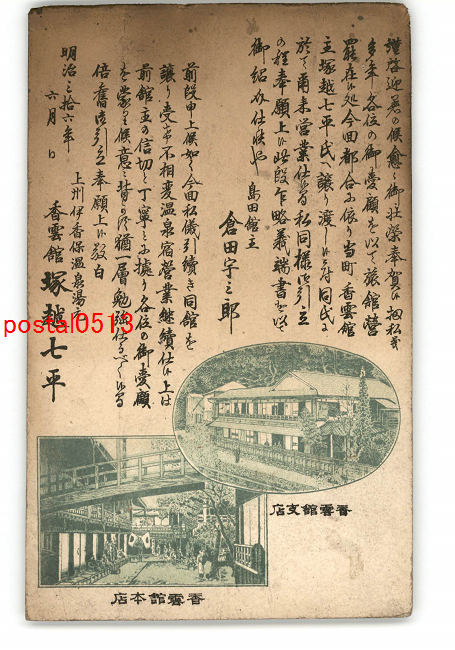 謹啓迎暑の候愈々御壮栄奉賀候
多年各位の御愛顧を以て旅館営
罷在候処今回都合に依り当町香雲館
主塚越七平氏へ譲り渡し
於て爾来営業仕候
の程奉願上候此段乍略義端書を以て
御紹介仕候也
島田館主
倉田宇三郎
前段申上候如く今回私儀引続き同館を
譲り受け不相変温泉宿営業継続仕候上は
前館主の信切と丁寧とに據り各位の御愛顧
を蒙り候意に背かず猶一層勉強
倍旧御引立奉願上候敬白
明治三拾六年
六月 日
上州伊香保温泉湯
香雲館 塚越七平
postal0513
香雲館支店
香雲館本店